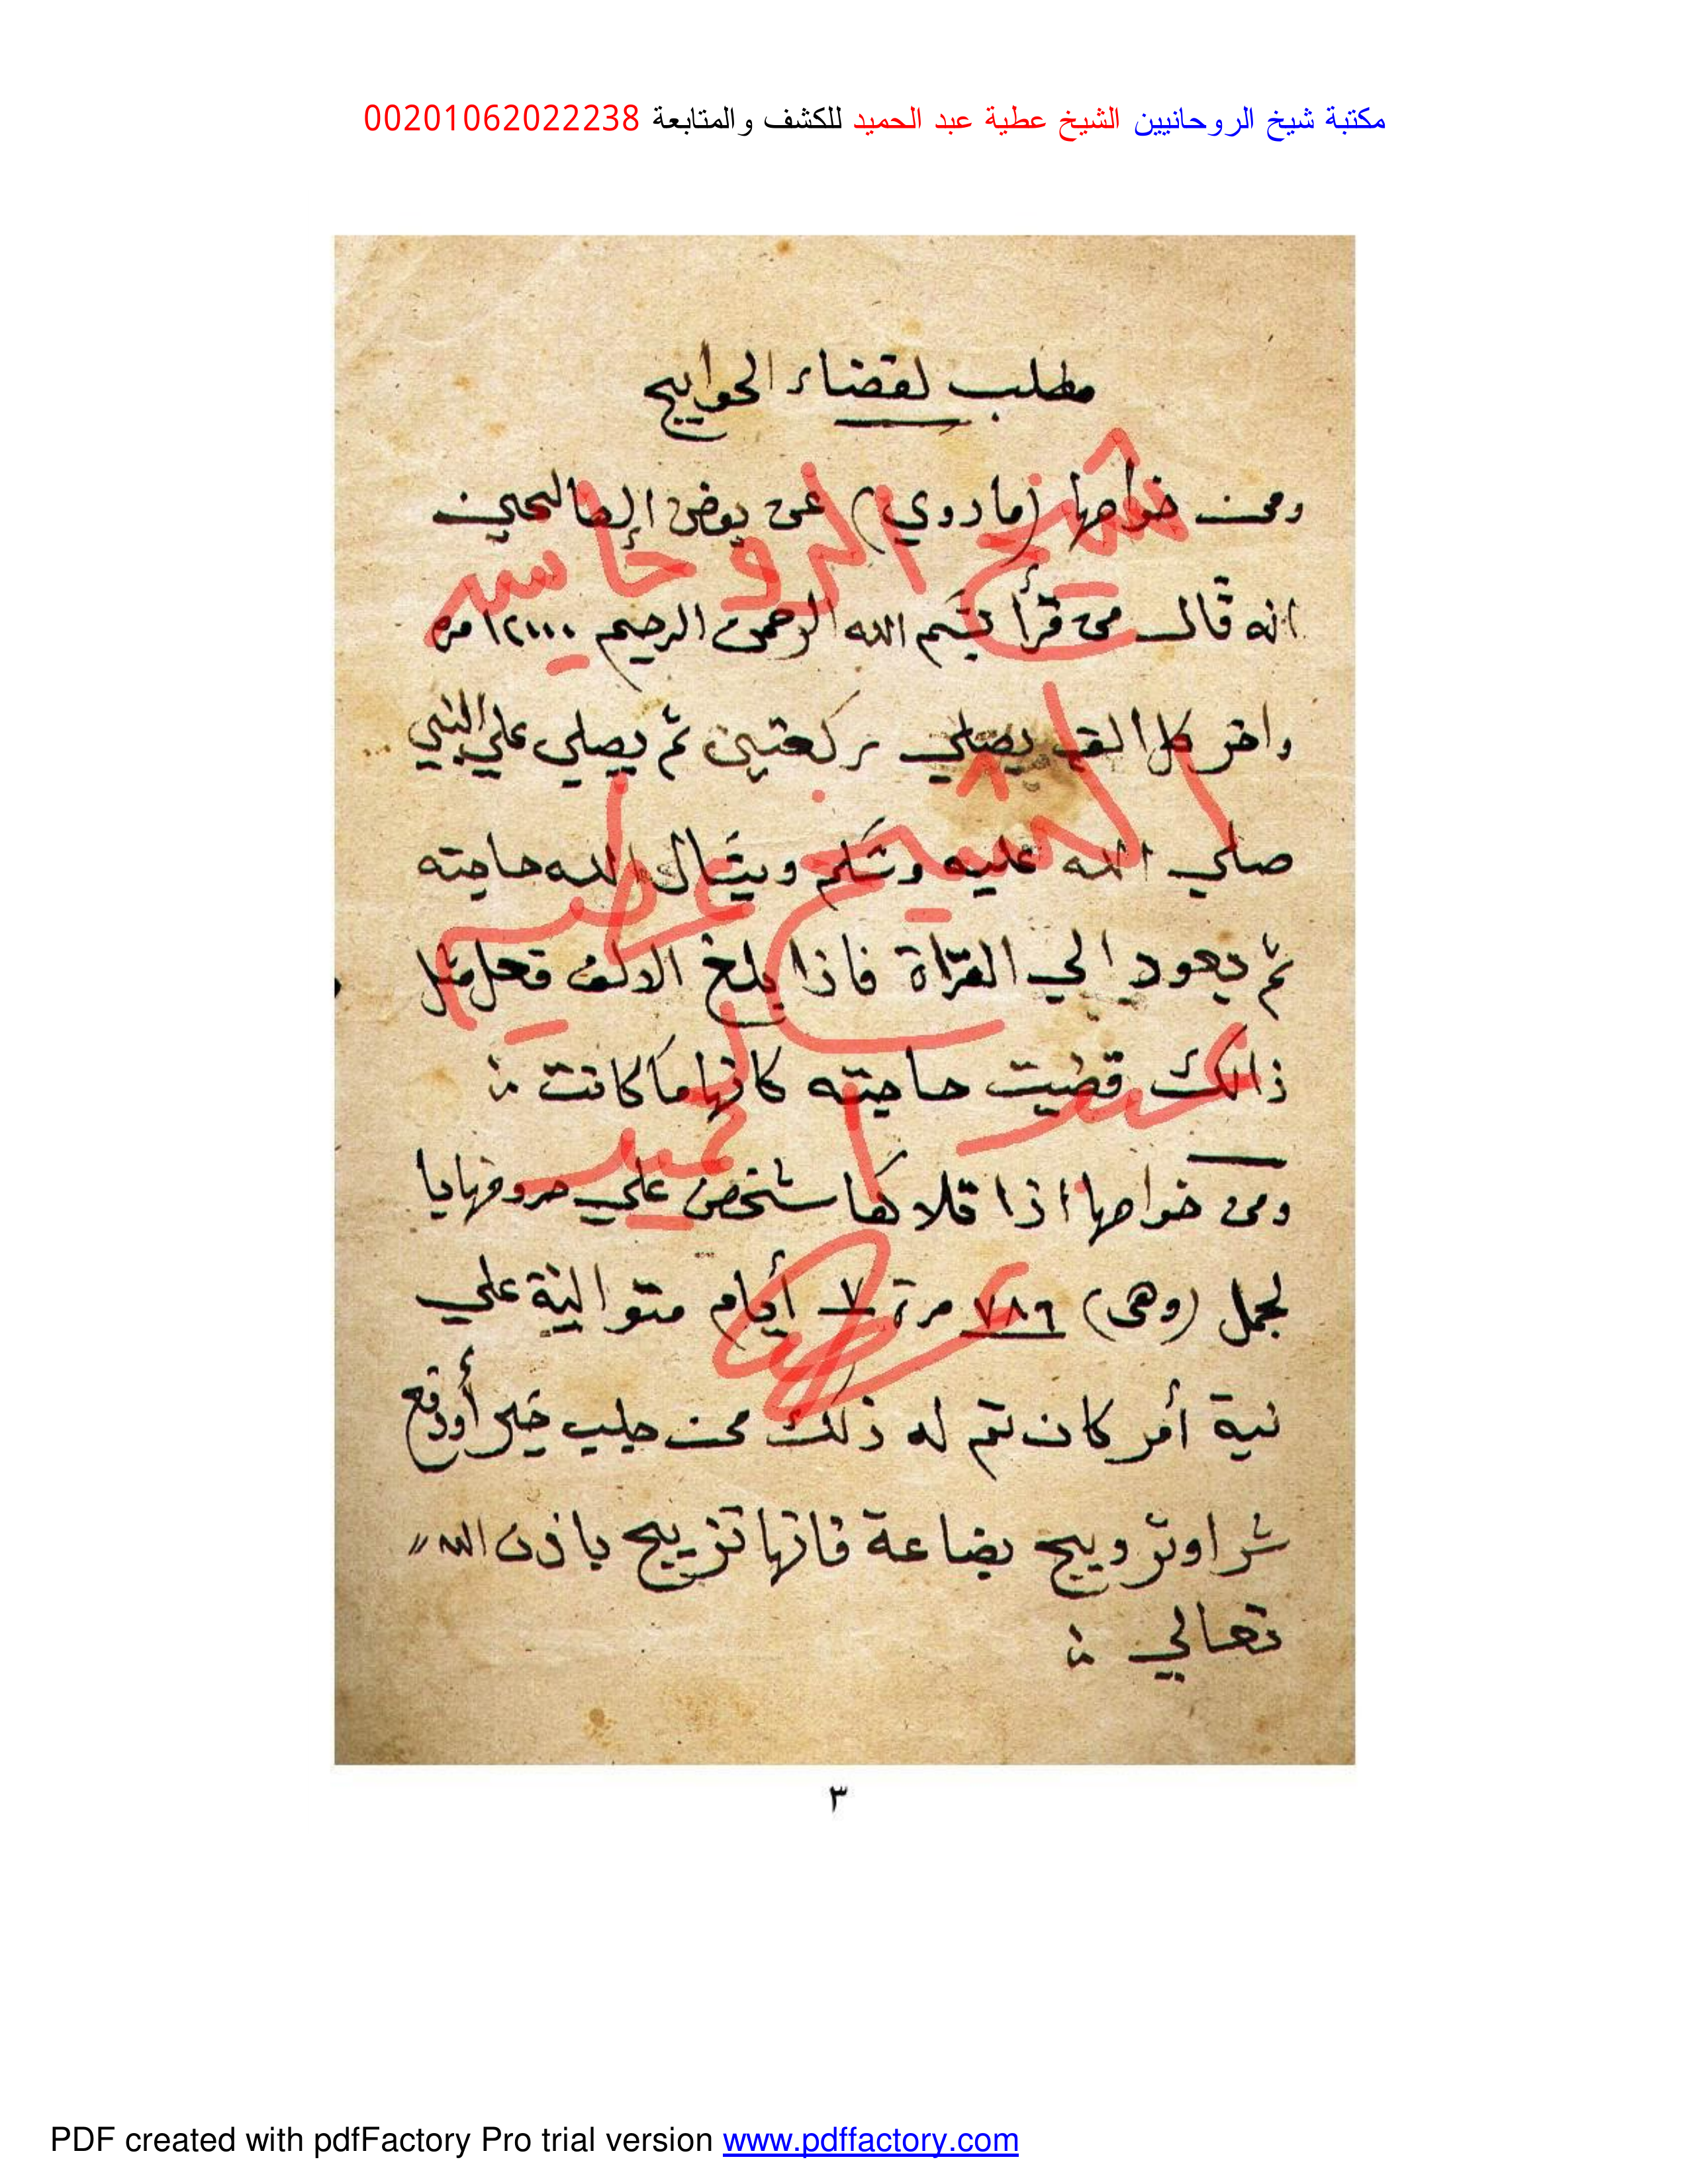 مكتبة شيخ الروحانيين الشيخ عطية عبد الحميد للكشف والمتابعة 00201062022238
مطلب لقضاء الحوايج
ومن خواصها (ما روي) عن بعض الصالحين
انه قال من قرأ بسم الله الرحمن الرحيم ١٢٠٠٠ مره
واخر كل الف يصلي ركعتين ثم يصلي علي النبي
صلي الله عليه وسلم ويسال الله حاجته
ثم يعود الي القراة فاذا بلغ الالف فعل مثل
ذالك قضيت حاجته كانها ما كانت
ومن خواصها اذا تلاها شخص علي حروفها با
لجمل (وهى) ٧٨٦ مرة ٧ أيام متوالية علي
نية أمر كان تم له ذلك من جلب خير أودفع
شر اوترويج بضاعة فانها تريج باذن الله
تعالي
شيخ الروحانيين
الشيخ عطيه
عبد الحميد
٣
PDF created with pdfFactory Pro trial version www.pdffactory.com